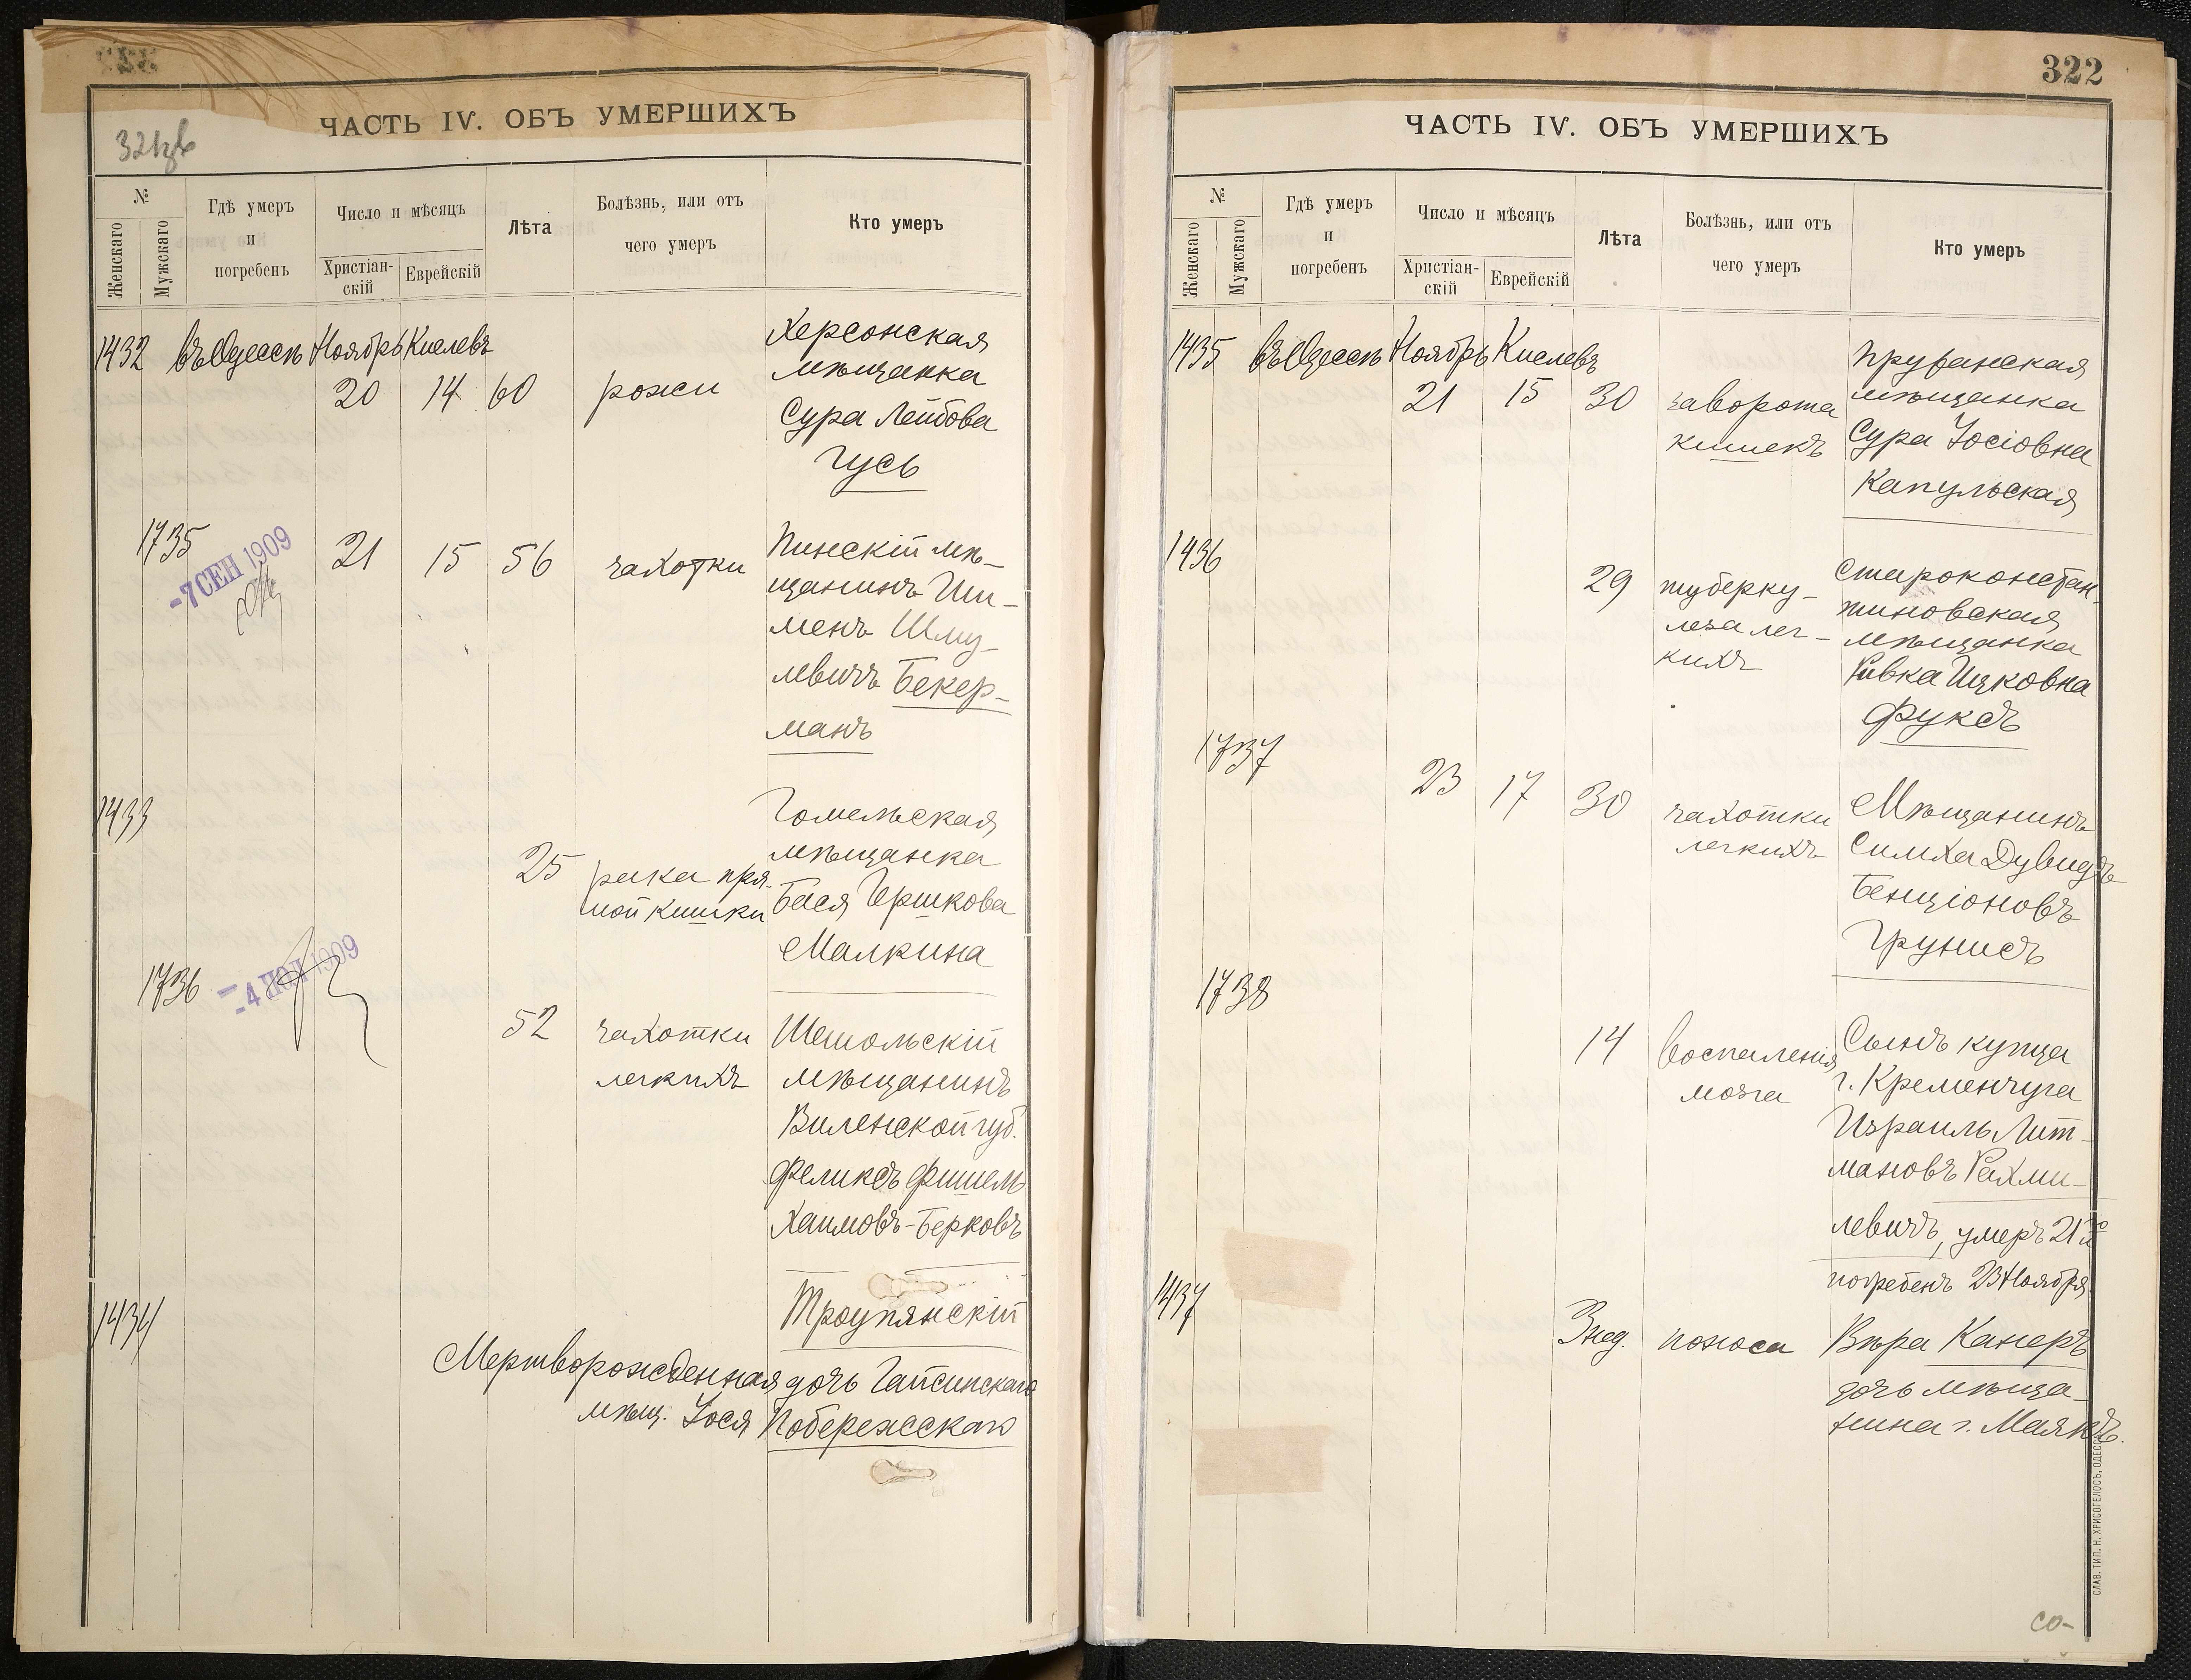 ЧАСТЬ IV. ОБЪ УМЕРШИХЪ
№
Женскаго
Мужскаго
Гдѣ умеръ
и
погребенъ
Число и мѣсяцъ
Христіан-
скій
Еврейскій
Лѣта
Болѣзнь, или отъ
чего умеръ
Кто умеръ
1432 въ Одессѣ Ноябрь Кислевъ
20 14 60 рожи
Херсонская
мѣщанка
Сура Лейбова
Гусь
1735
-7 СЕН 1909
21 15 56 чахотки
Пинскій мѣ-
щанинъ
менъ Шму-
левичъ Бекер-
манъ
1433
25 рака пря-
мой кишки
Гомельская
мѣщанка
Бася Гершкова
Малкина
1736
52 чахотки
легкихъ
Шешольскій
мѣщанинъ
Виленской губ.
Феликсъ Фишель
Хаимовъ-Берковъ
Троупянскій
1434
Мертворожденная дочь Гайсинскаго
мѣщ. Іося Побережскаго
322
ЧАСТЬ IV. ОБЪ УМЕРШИХЪ
№
Женскаго
Мужскаго
Гдѣ умеръ
и
погребенъ
Число и мѣсяцъ
Христіан-
скій
Еврейскій
Лѣта
Болѣзнь, или отъ
чего умеръ
Кто умеръ
1435 въ Одессѣ Ноябрь Кислевъ
21 15 30 заворота
кишекъ
Пружанская
мѣщанка
Сура Іосіовна
Капульская
1436
29 туберку-
леза лег-
кихъ
Староконстан-
тиновская
мѣщанка
Ривка Ицковна
Фуксъ
1737
23 17 30 чахотки
легкихъ
Мѣщанинъ
Симха Дувидъ
Бенціоновъ
Грунисъ
1738
14 воспаленія
мозга
Сынъ купца
г. Кременчуга
Израиль Лит-
мановъ Рахми-
левичъ, умеръ 21 и
погребенъ 23 Ноября
1437
3 нед. поноса
Вѣра Канеръ
дочь мѣща-
нина г. Маякъ.
СЛАВ. ТИП. Н. ХРИСОГЕЛОСЪ, ОДЕССА
со-